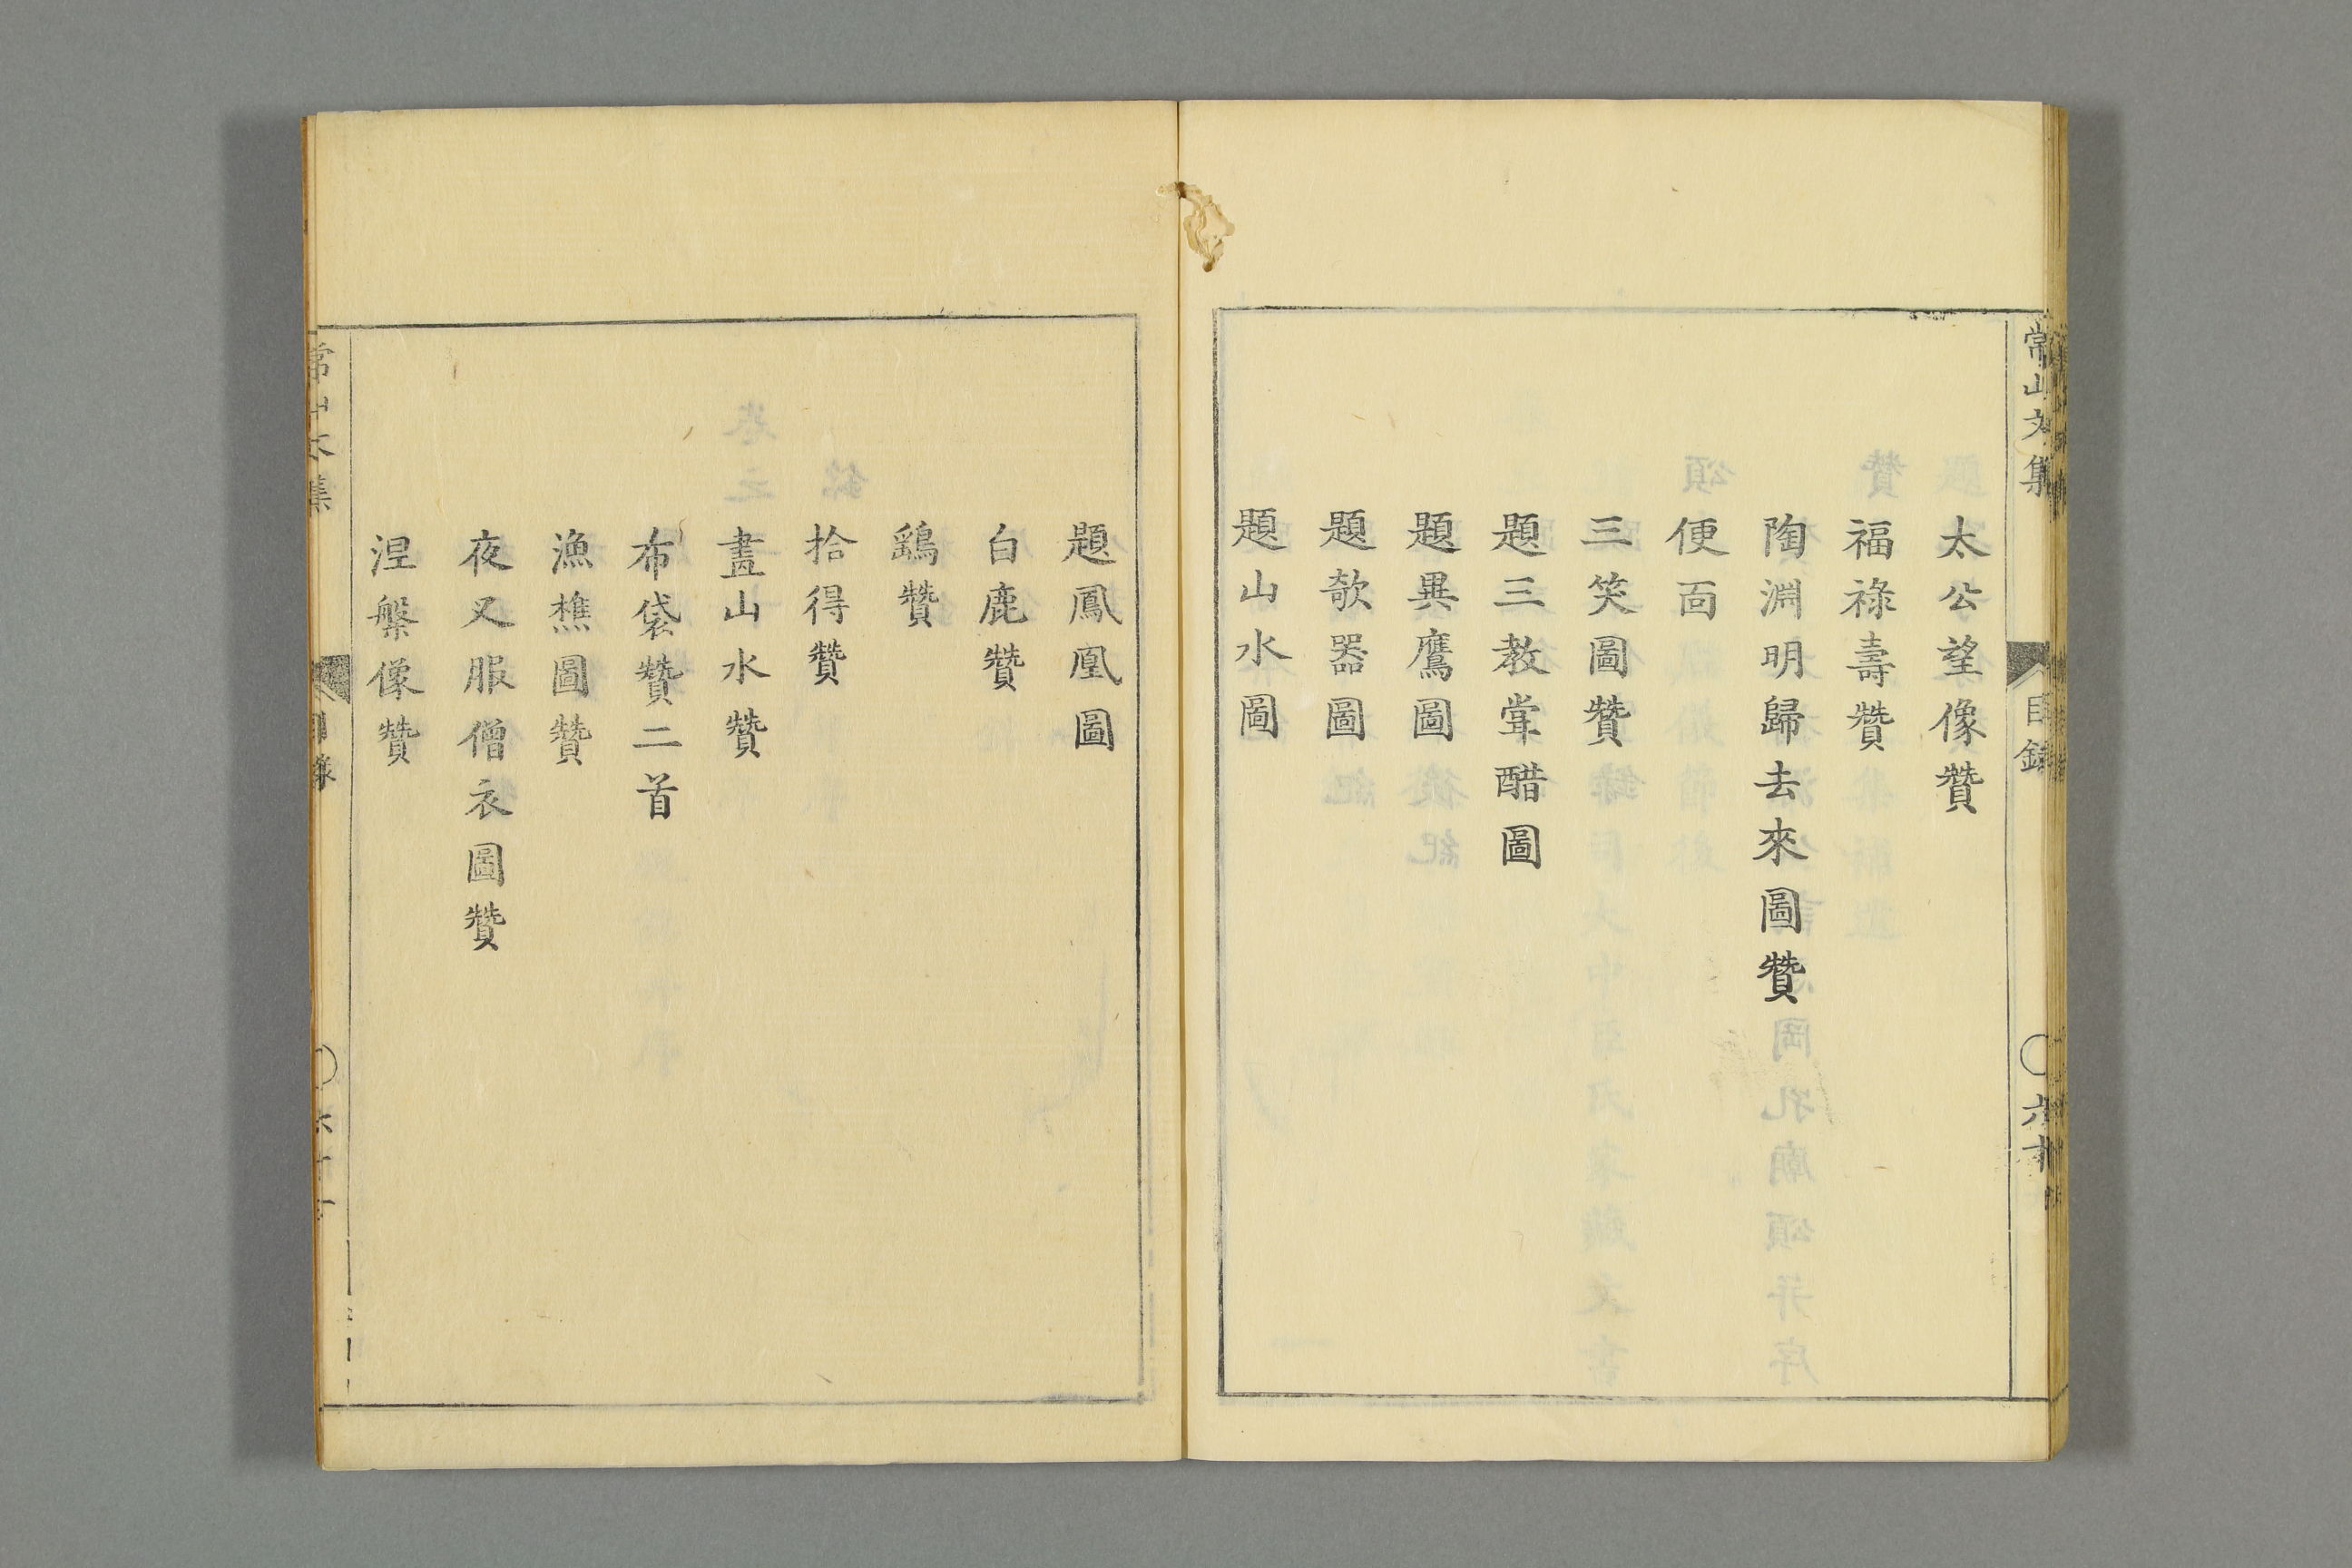 常山文集
目錄
六十
太公望像贊
福祿壽贊
陶淵明歸去來圖贊
便面
三笑圖贊
題三教甞醋圖
題異鷹圖
題欹器圖
題山水圖
題鳳凰圖
白鹿贊
鷂贊
拾得贊
畫山水贊
布袋贊二首
漁樵圖贊
夜叉服僧衣圖贊
涅槃像贊